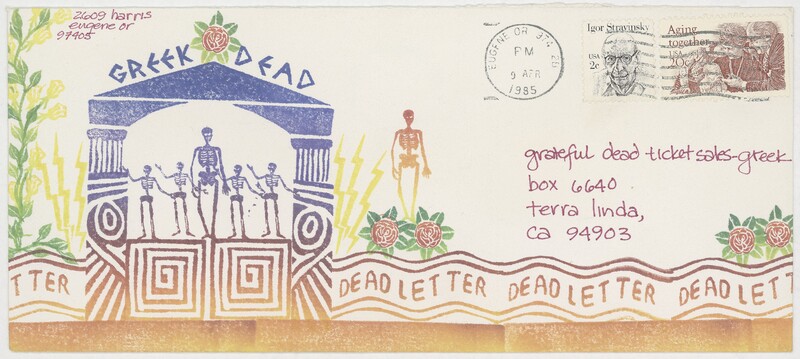 2609 harris
eugene or
97405
GREEK DEAD
EUGENE OR 974 2B
PM
9 APR
1985
Igor Stravinsky
USA
2c
Aging
together
USA
20c
grateful dead ticket sales-greek
box 6640
terra linda,
ca 94903
TTER DEAD LETTER DEAD LETTER DEAD LETT